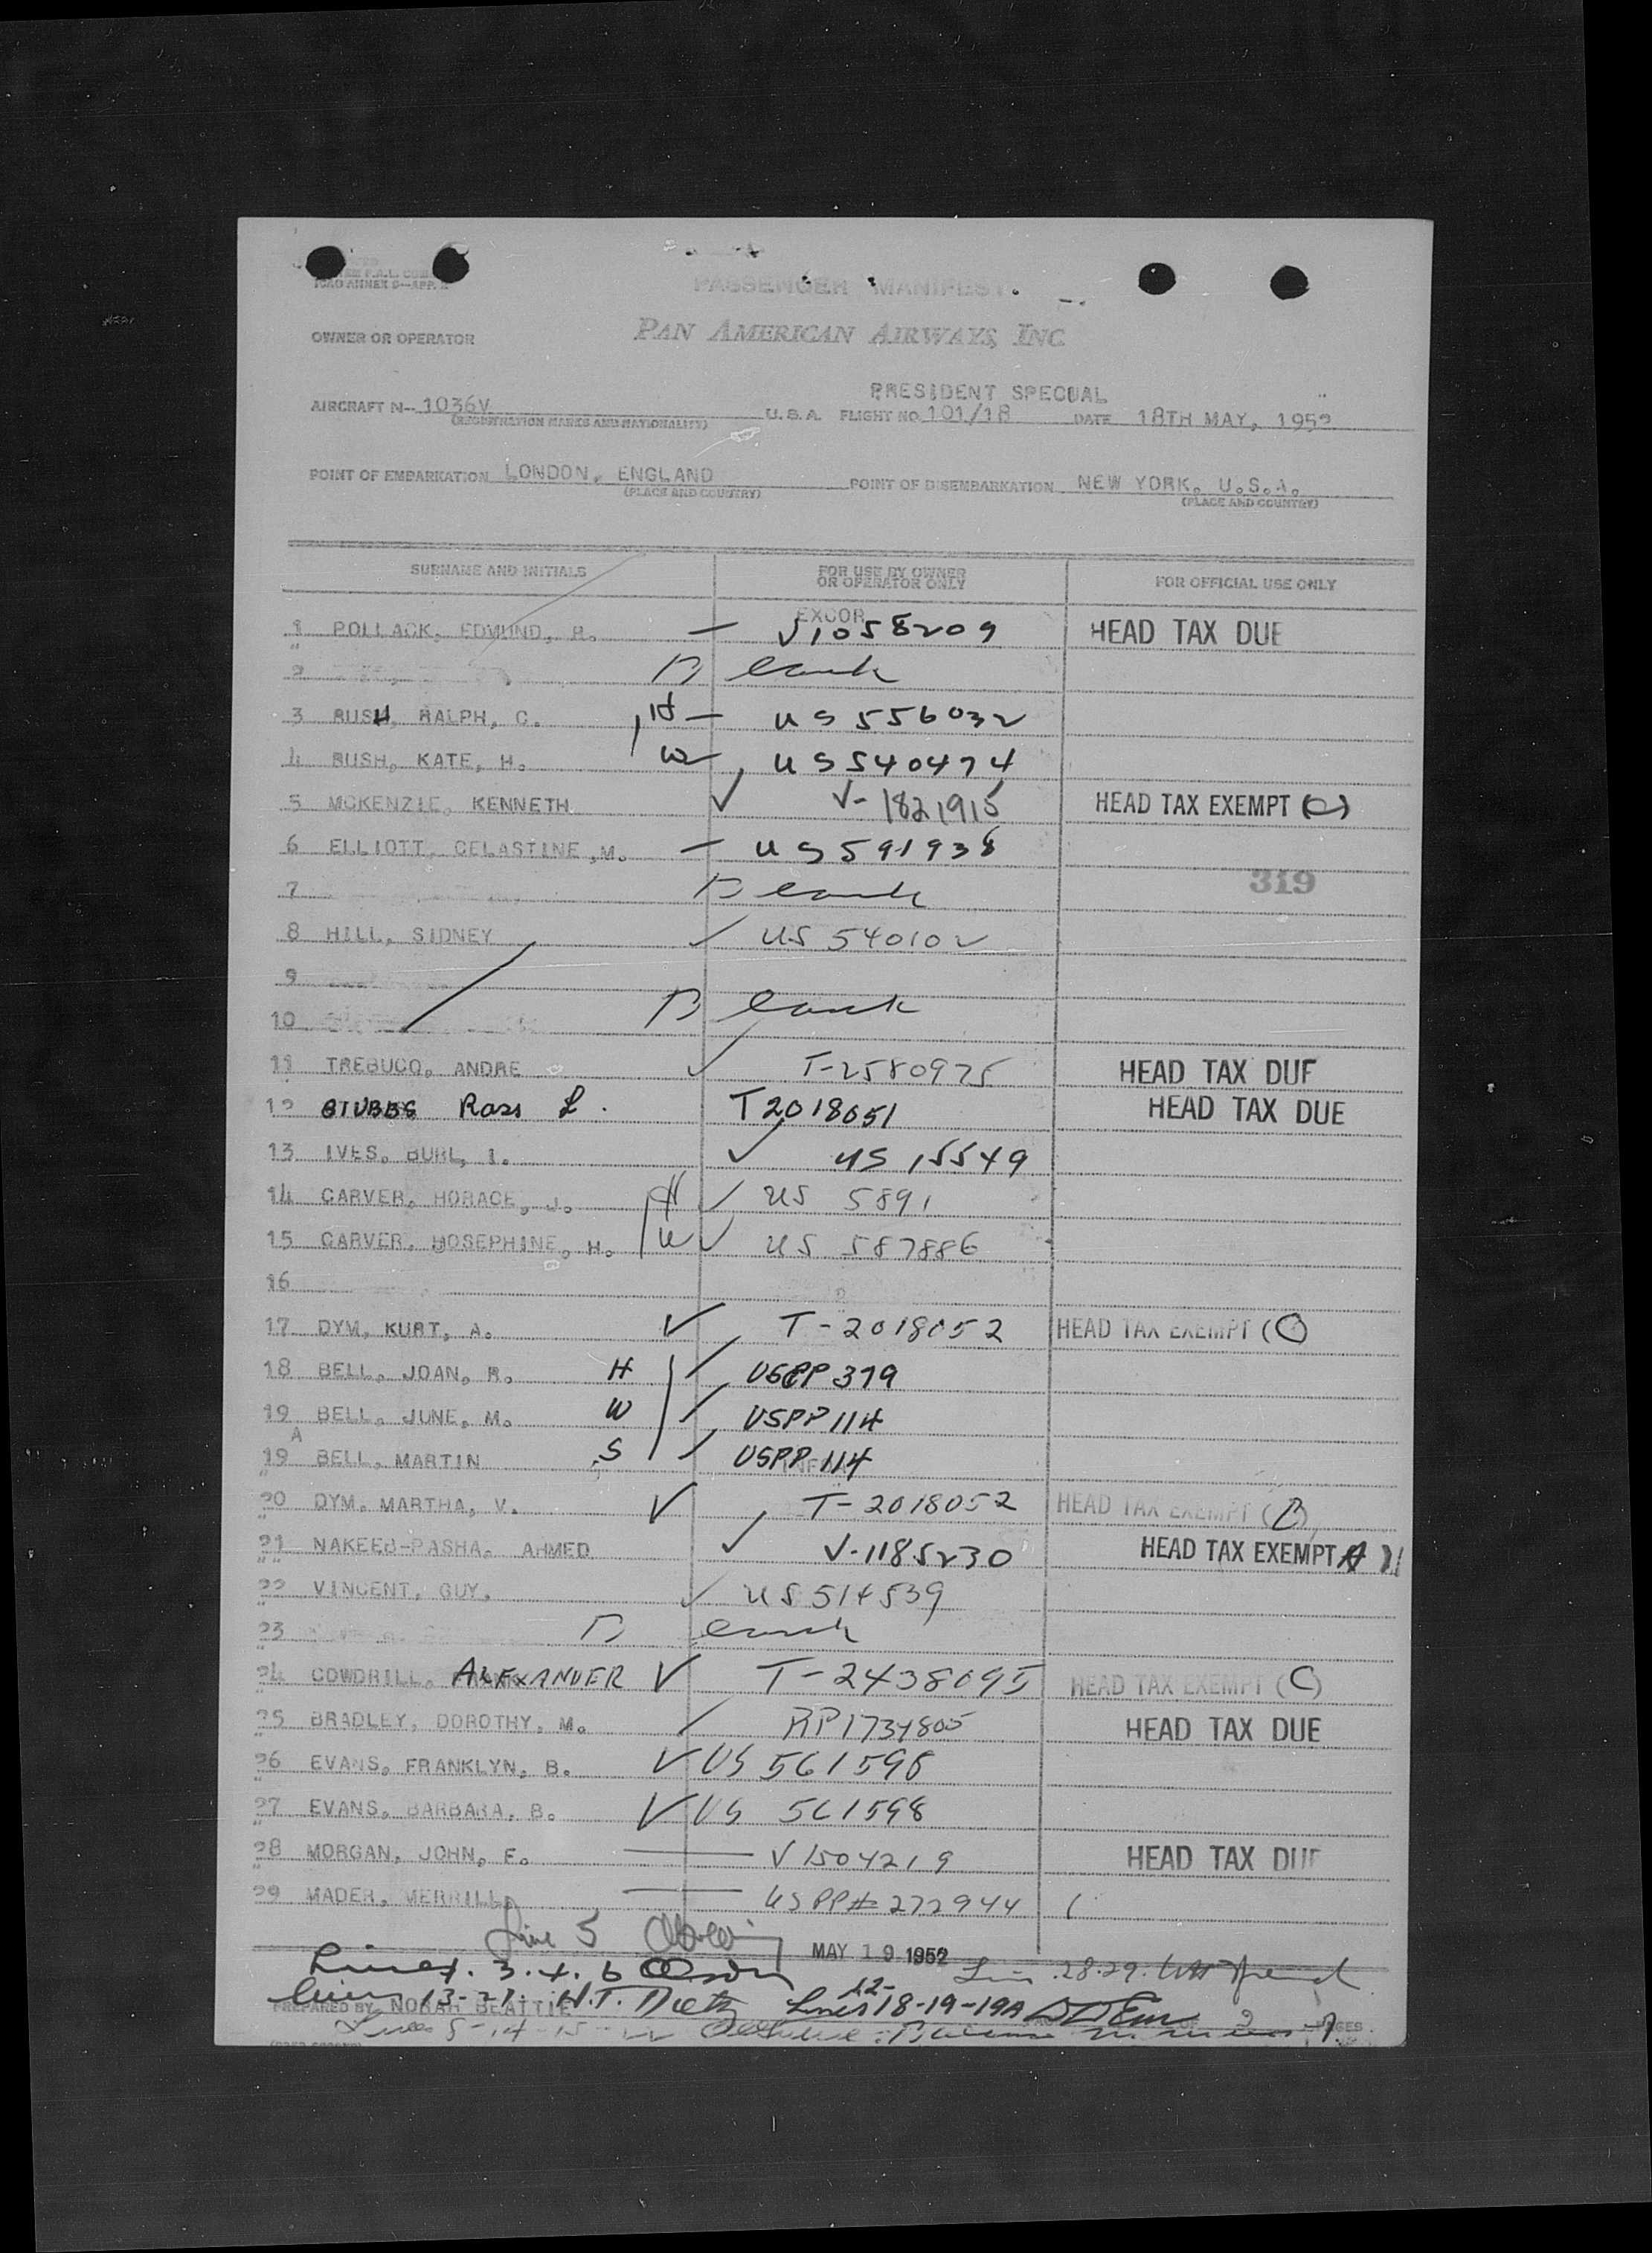 PASSENGER MANIFEST
ICAO ANNEX 9—APP.
OWNER OR OPERATOR PAN AMERICAN AIRWAYS, INC
PRESIDENT SPECUAL
AIRCRAFT N-- 1036V U.S.A. FLIGHT NO. 101/18 DATE 18TH MAY, 1952
(REGISTRATION MARKS AND NATIONALITY)
POINT OF EMBARKATION LONDON, ENGLAND POINT OF DISEMBARKATION NEW YORK, U.S.A.
(PLACE AND COUNTRY) (PLACE AND COUNTRY)
SURNAME AND INITIALS FOR USE BY OWNER OR OPERATOR ONLY FOR OFFICIAL USE ONLY
EXCOR
1 POLLACK, EDMUND, R. — V1058209 HEAD TAX DUE
2 Blank
3 BUSH, RALPH, C. H — US 556032
4 BUSH, KATE, H. W US 540474
5 MCKENZIE, KENNETH ✓ V-1821915 HEAD TAX EXEMPT (C)
6 ELLIOTT, CELASTINE, M. — US 591938
7 Blank 319
8 HILL, SIDNEY ✓ US 540102
9
10 Blank
11 TREBUCQ, ANDRE ✓ T-2580975 HEAD TAX DUE
12 STUBBS Ross L. T2018051 HEAD TAX DUE
13 IVES, BURL, I. ✓ US 15549
14 CARVER, HORACE, J. H ✓ US 5891
15 CARVER, JOSEPHINE, H. W ✓ US 587886
16
17 DYM, KURT, A. ✓ T-2018052 HEAD TAX EXEMPT (C)
18 BELL, JOAN, R. H USPP 379
19 BELL, JUNE, M. W USPP 114
A
19 BELL, MARTIN S USPP 114
20 DYM, MARTHA, V. ✓ T-2018052 HEAD TAX EXEMPT (B)
21 NAKEEB-PASHA, AHMED ✓ V-1185230 HEAD TAX EXEMPT A
22 VINCENT, GUY. ✓ US 514539
23 Blank
24 COWDRILL, ALEXANDER ✓ T-2438095 HEAD TAX EXEMPT (C)
25 BRADLEY, DOROTHY, M. RP1734805 HEAD TAX DUE
26 EVANS, FRANKLYN, B. ✓ US 561598
27 EVANS, BARBARA, B. ✓ US 561598
28 MORGAN, JOHN, E. — V1504219 HEAD TAX DUE
29 MADER, MERRILL — US PP# 272944
Line 5
MAY 19 1952
Lines 1. 3. 4. 6 Line 28.29.
Lines 13-21. H.T. Dietz 12- Lines 18-19-19A
PREPARED BY NORAH BEATTIE OF 2 PAGES